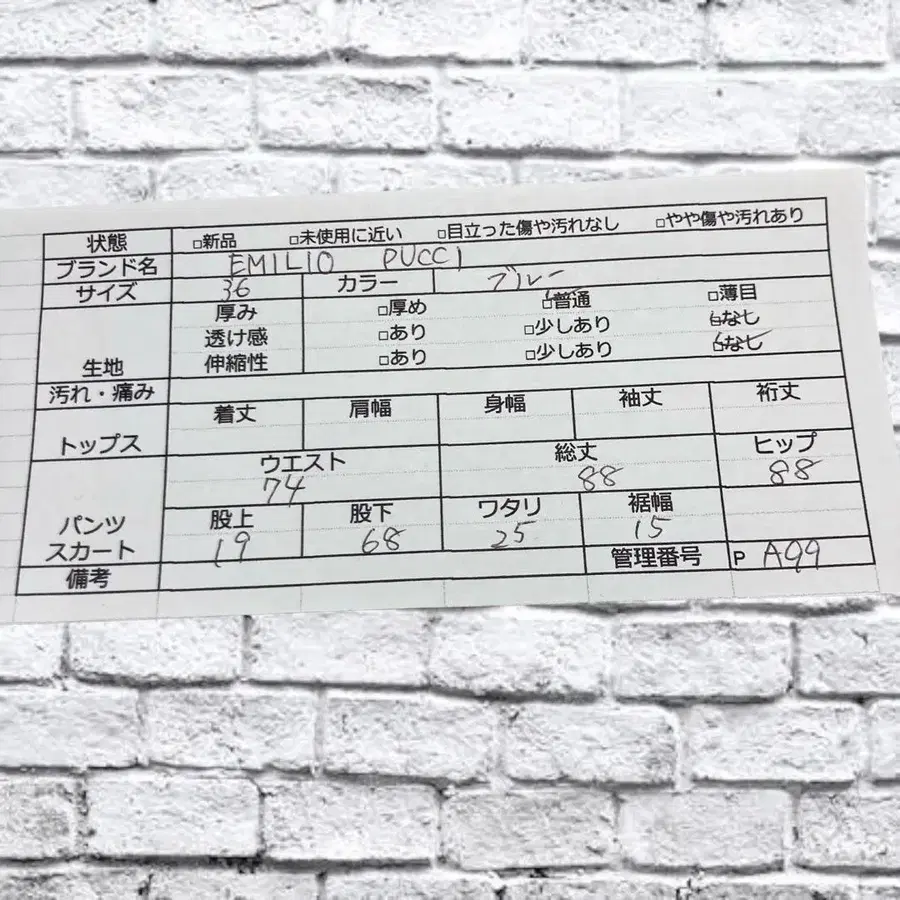 状態 □新品 □未使用に近い □目立った傷や汚れなし □やや傷や汚れあり
ブランド名 EMILIO PUCCI
サイズ 36 カラー ブルー
厚み □厚め □普通 □薄目
透け感 □あり □少しあり □なし
生地 伸縮性 □あり □少しあり □なし
汚れ・痛み
トップス 着丈 肩幅 身幅 袖丈 裄丈
ウエスト 総丈 ヒップ
74 88 88
パンツ スカート 股上 股下 ワタリ 裾幅
19 68 25 15
備考 管理番号 P A99